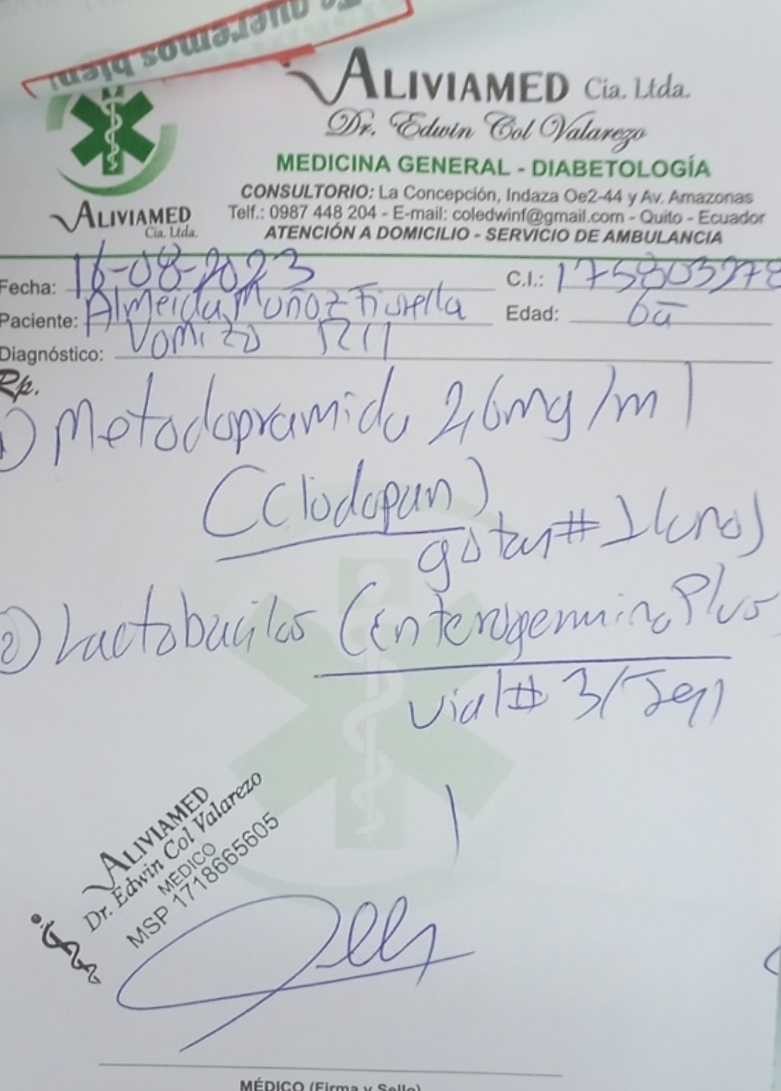 queremos bien!
ALIVIAMED Cia. Ltda.
Dr. Edwin Col Valarezo
MEDICINA GENERAL - DIABETOLOGÍA
CONSULTORIO: La Concepción, Indaza Oe2-44 y Av. Amazonas
Telf.: 0987 448 204 - E-mail: coledwinf@gmail.com - Quito - Ecuador
ATENCIÓN A DOMICILIO - SERVICIO DE AMBULANCIA
ALIVIAMED
Cia. Ltda.
Fecha: 16-08-2023 C.I.:
Paciente: Almeida Muñoz Fiorella Edad: 6a
Diagnóstico: Vomito R11
Rp.
1) Metoclopramida 2,6mg/ml
(Clodopan)
gotas #1(uno)
2) Lactobacilos (Enterogermina Plus
vial # 3(Tres)
ALIVIAMED
Dr. Edwin Col Valarezo
MEDICO
MSP 1718665605
MÉDICO (Firma y Sello)